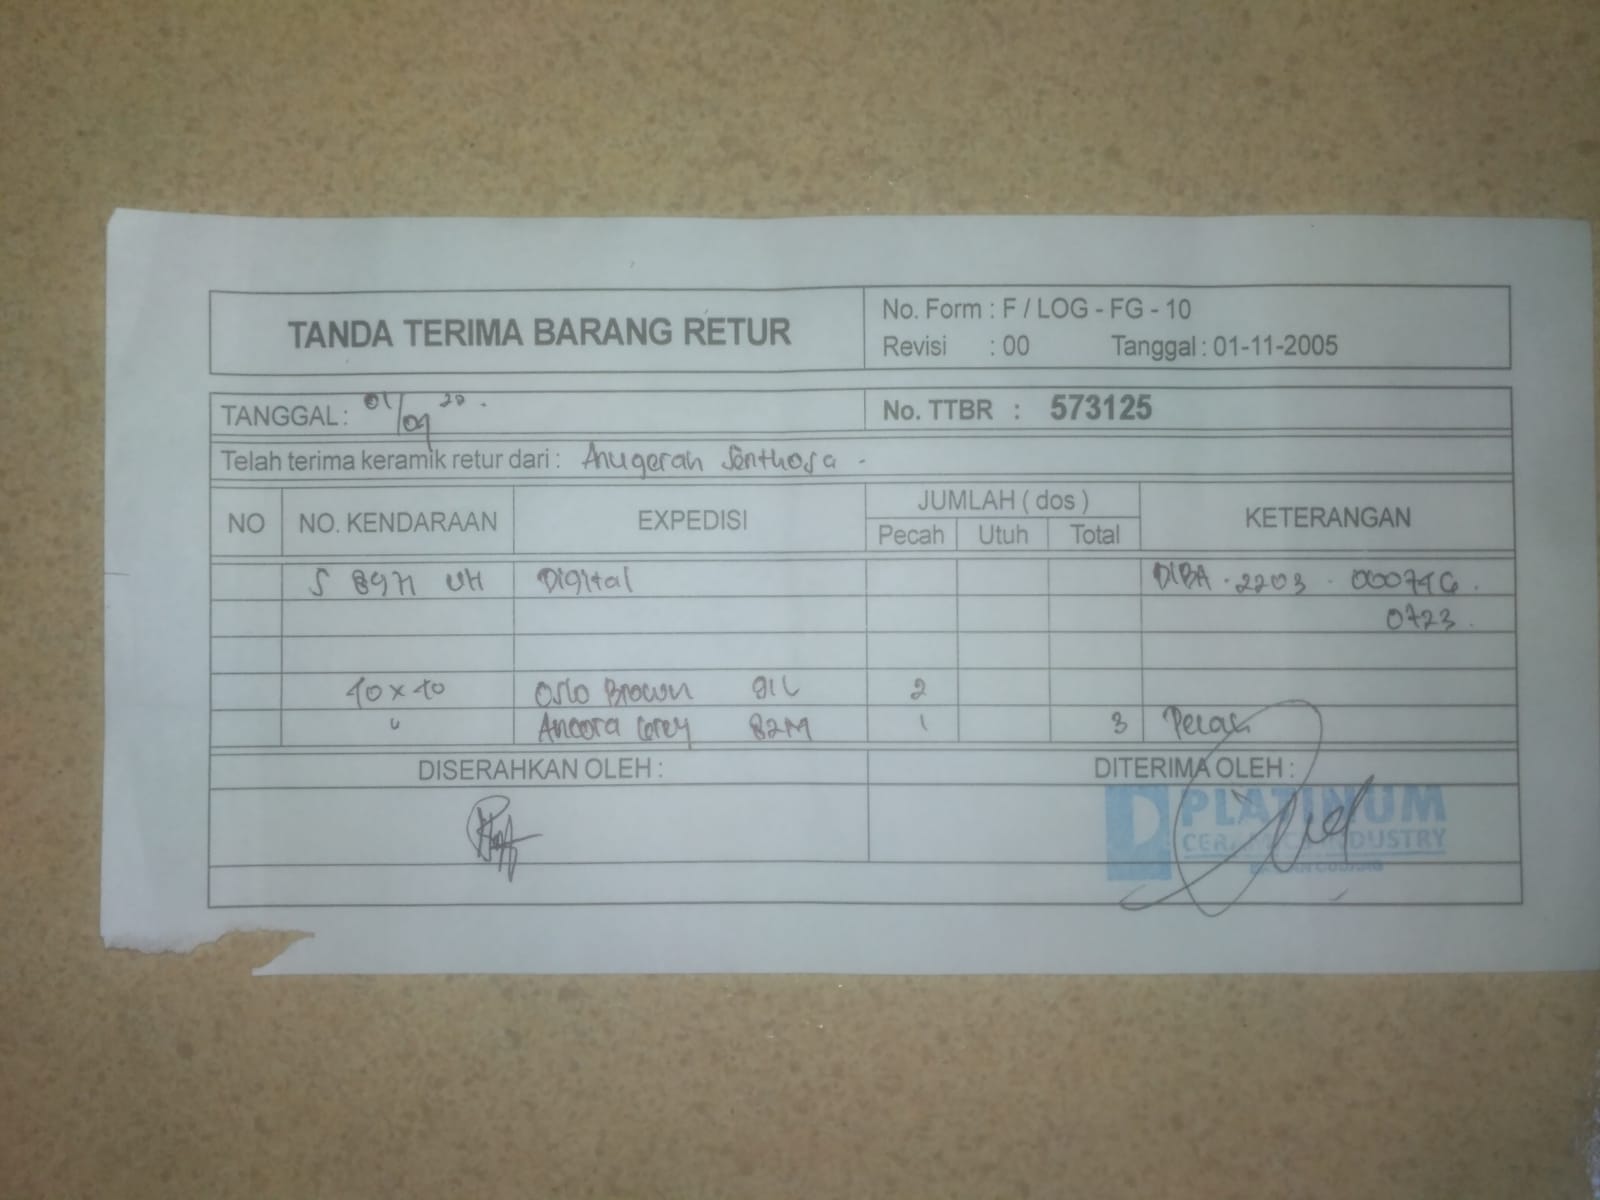 TANDA TERIMA BARANG RETUR
No. Form : F / LOG - FG - 10
Revisi : 00 Tanggal : 01-11-2005
TANGGAL : 01/09 20.
No. TTBR : 573125
Telah terima keramik retur dari : Anugerah Senthosa -
NO NO. KENDARAAN EXPEDISI JUMLAH ( dos ) KETERANGAN
Pecah Utuh Total
S UH Digital DIBA . 2203 .
0723 .
40 x 40 Oslo Brown 91L 2
" Ancora Grey 82M 1 3 Pecah
DISERAHKAN OLEH : DITERIMA OLEH :
PLATINUM
CERAMICS INDUSTRY